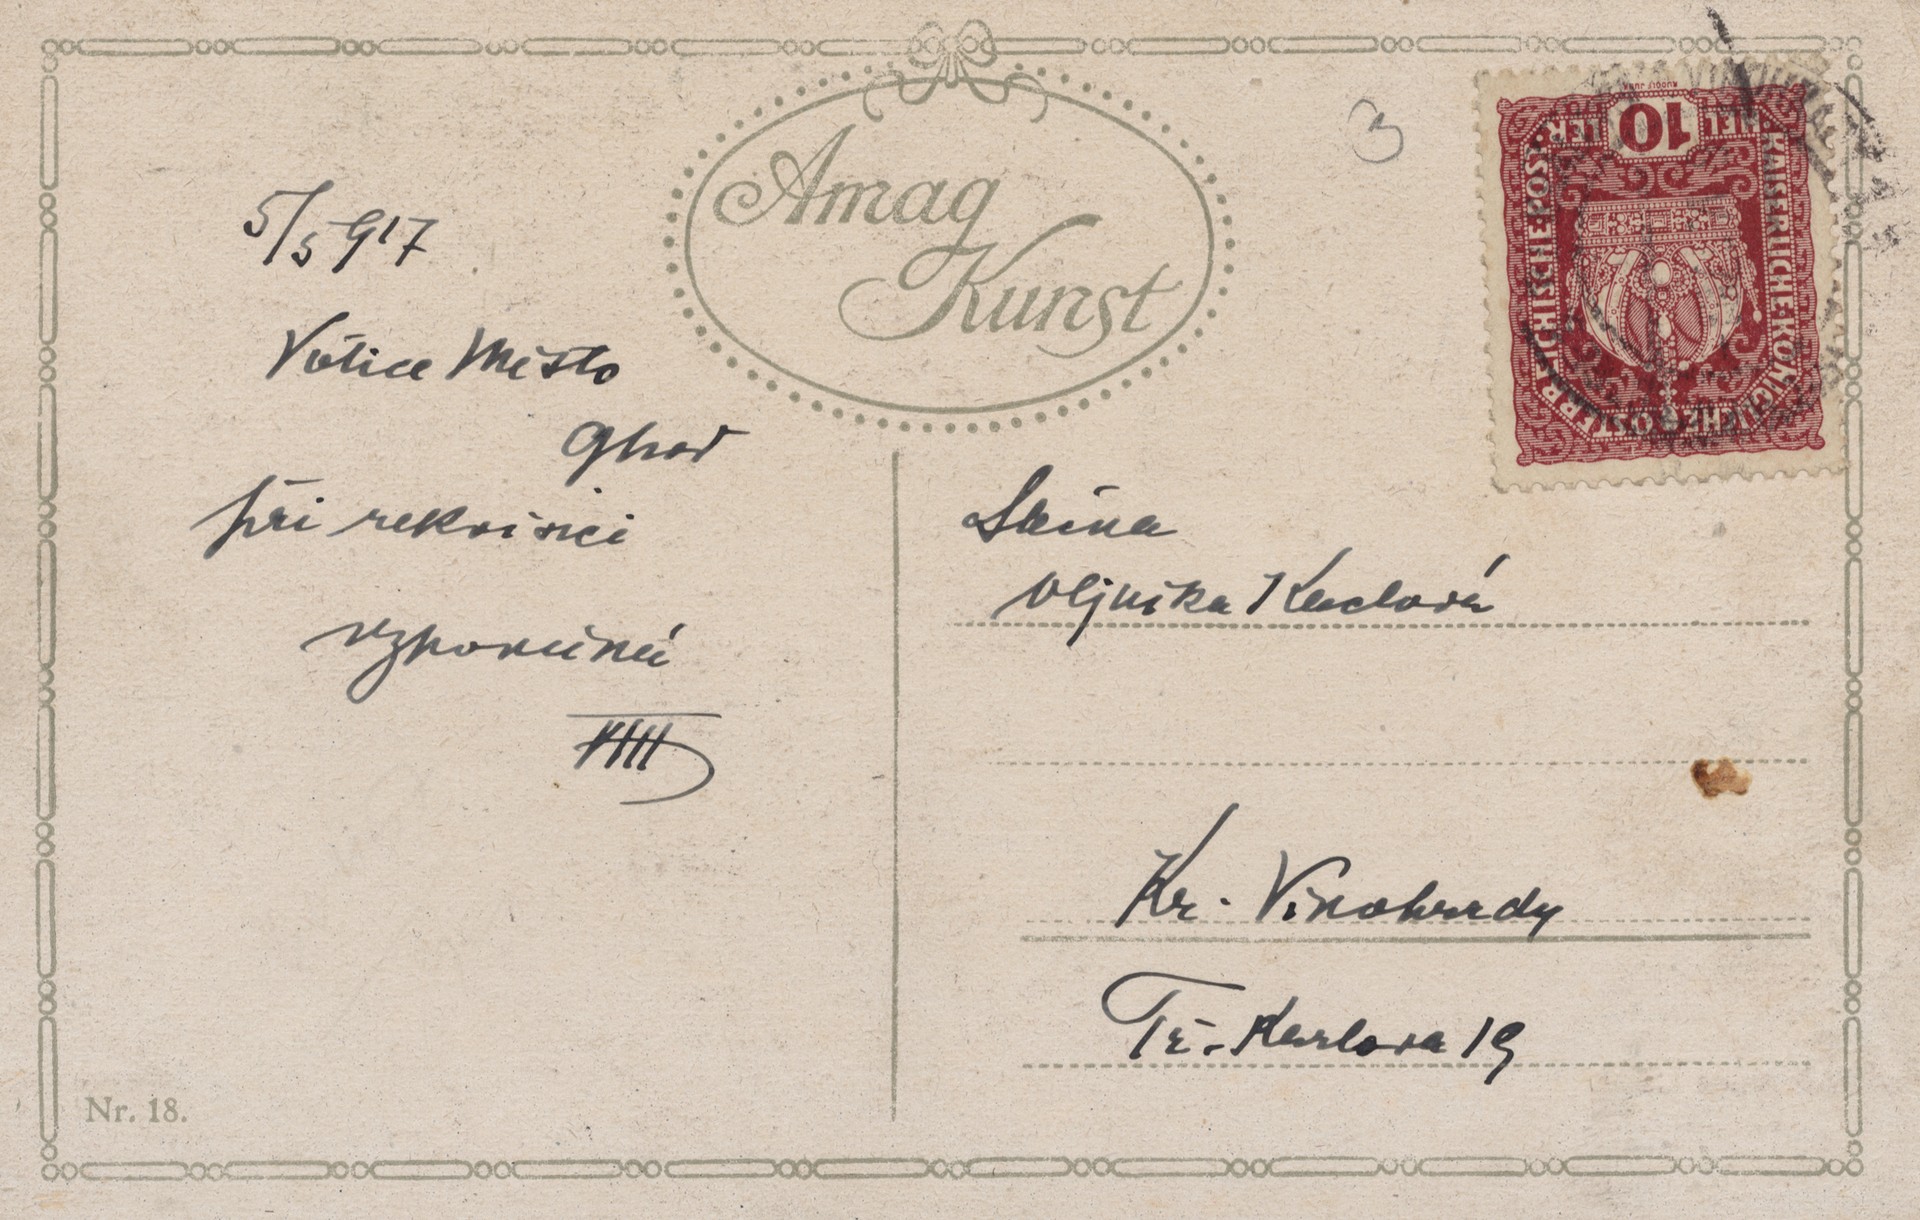 Amag
Kunst
3
5/5 917
Votice Město
při rekvisici
vzpomíná
Slečna
Kr. Vinohrady
Tř. Karlova 19
Nr. 18.
10
HEL
LER
KAISERLICHE KÖNIGLICHE ÖSTERREICHISCHE POST
RUDOLF JUNK